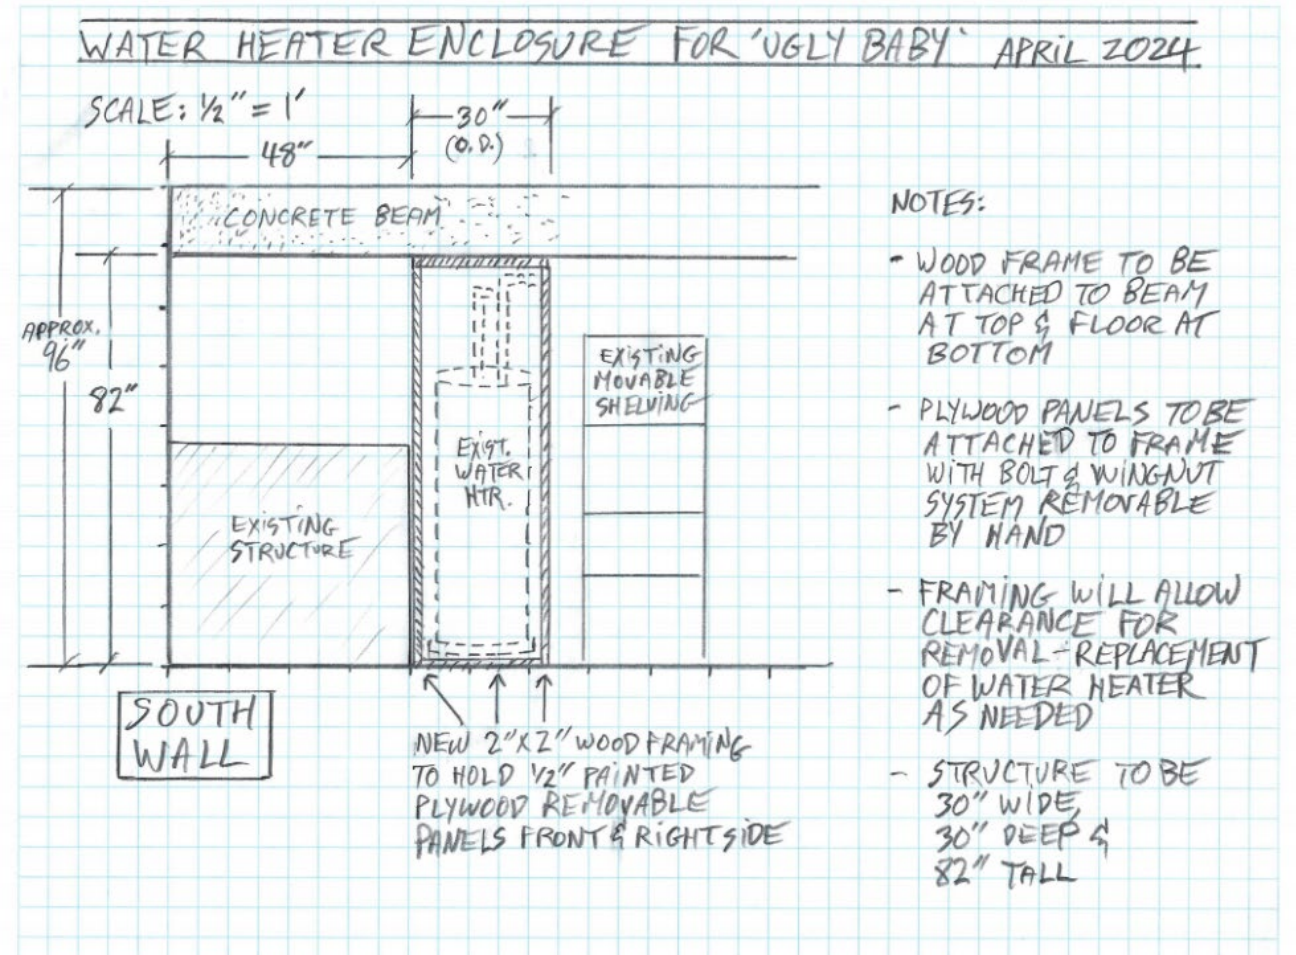 WATER HEATER ENCLOSURE FOR 'UGLY BABY' APRIL 2024
SCALE: 1/2" = 1'
30"
(O.D.)
48"
CONCRETE BEAM
APPROX.
96"
82"
EXISTING
MOVABLE
SHELVING
EXIST.
WATER
HTR.
EXISTING
STRUCTURE
SOUTH
WALL
NEW 2"X2" WOOD FRAMING
TO HOLD 1/2" PAINTED
PLYWOOD REMOVABLE
PANELS FRONT & RIGHT SIDE
NOTES:
- WOOD FRAME TO BE
ATTACHED TO BEAM
AT TOP & FLOOR AT
BOTTOM
- PLYWOOD PANELS TO BE
ATTACHED TO FRAME
WITH BOLT & WINGNUT
SYSTEM REMOVABLE
BY HAND
- FRAMING WILL ALLOW
CLEARANCE FOR
REMOVAL-REPLACEMENT
OF WATER HEATER
AS NEEDED
- STRUCTURE TO BE
30" WIDE,
30" DEEP &
82" TALL